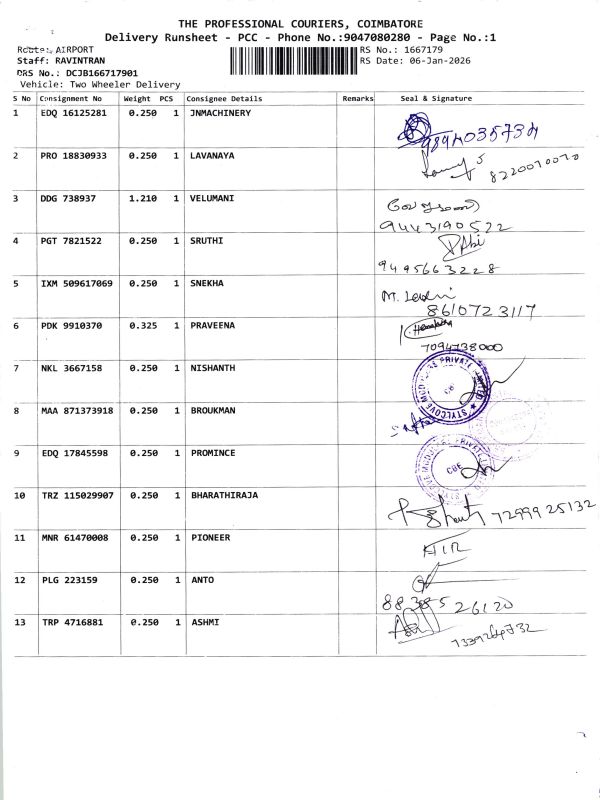 THE PROFESSIONAL COURIERS, COIMBATORE
Delivery Runsheet - PCC - Phone No.:9047080280 - Page No.:1
Route: AIRPORT RS No.: 1667179
Staff: RAVINTRAN RS Date: 06-Jan-2026
DRS No.: DCJB166717901
Vehicle: Two Wheeler Delivery
S No Consignment No Weight PCS Consignee Details Remarks Seal & Signature
1 EDQ 16125281 0.250 1 JNMACHINERY
9894035734
2 PRO 18830933 0.250 1 LAVANAYA
8220070070
3 DDG 738937 1.210 1 VELUMANI
9443190522
4 PGT 7821522 0.250 1 SRUTHI
9495663228
5 IXM 509617069 0.250 1 SNEKHA
8610723117
6 PDK 9910370 0.325 1 PRAVEENA
7094738000
7 NKL 3667158 0.250 1 NISHANTH
8 MAA 871373918 0.250 1 BROUKMAN
9 EDQ 17845598 0.250 1 PROMINCE
CBE
10 TRZ 115029907 0.250 1 BHARATHIRAJA
7299925132
11 MNR 61470008 0.250 1 PIONEER
12 PLG 223159 0.250 1 ANTO
13 TRP 4716881 0.250 1 ASHMI